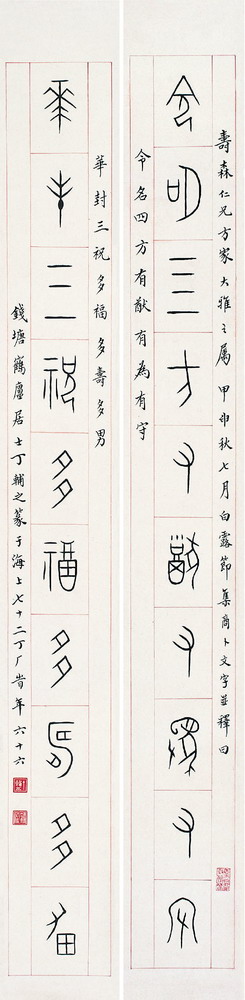 壽森仁兄方家大雅之屬甲申秋七月白露節集商卜文字並釋曰
令名四方有猷有為有守
令名四方有猷有為有守
華封三祝多福多壽多男
華封三祝多福多壽多男
錢塘鶴廬居士丁輔之篆于海上七十二丁厂旹年六十六